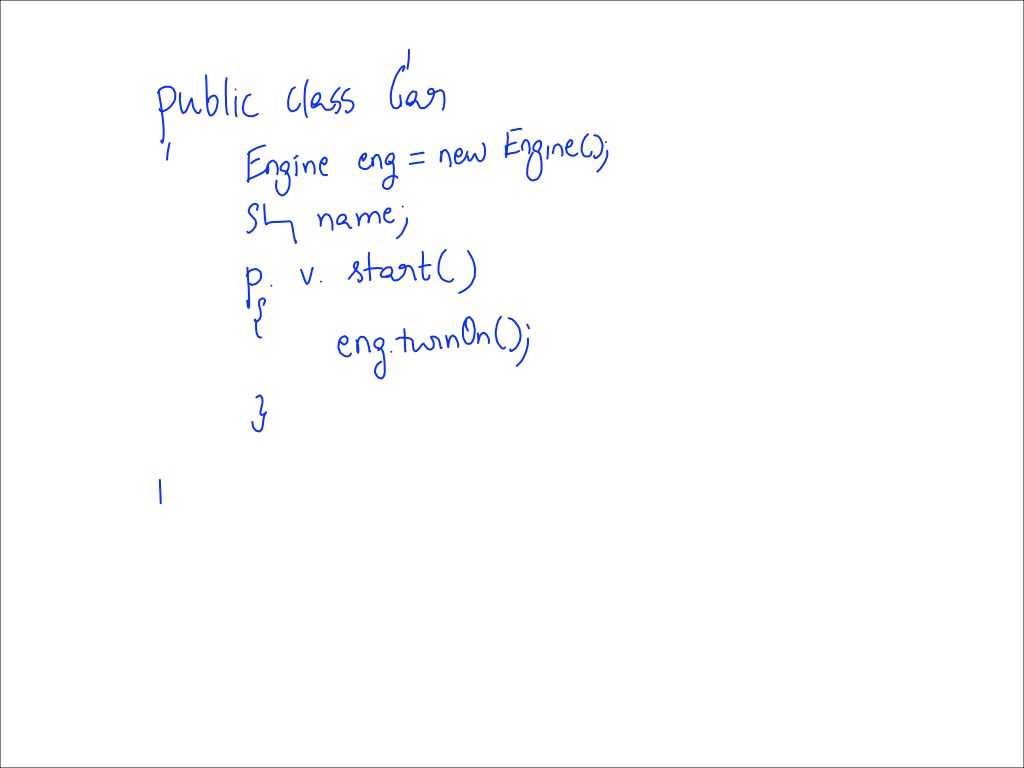 public class Car
Engine eng = new Engine();
name;
p. v. start()
{
eng.turnOn();
}